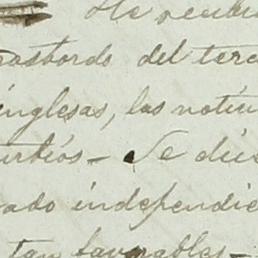 He recibi
trasbordo del terc
inglesas, las notic
urbios_ Se dice
ado independie
tan favorables_